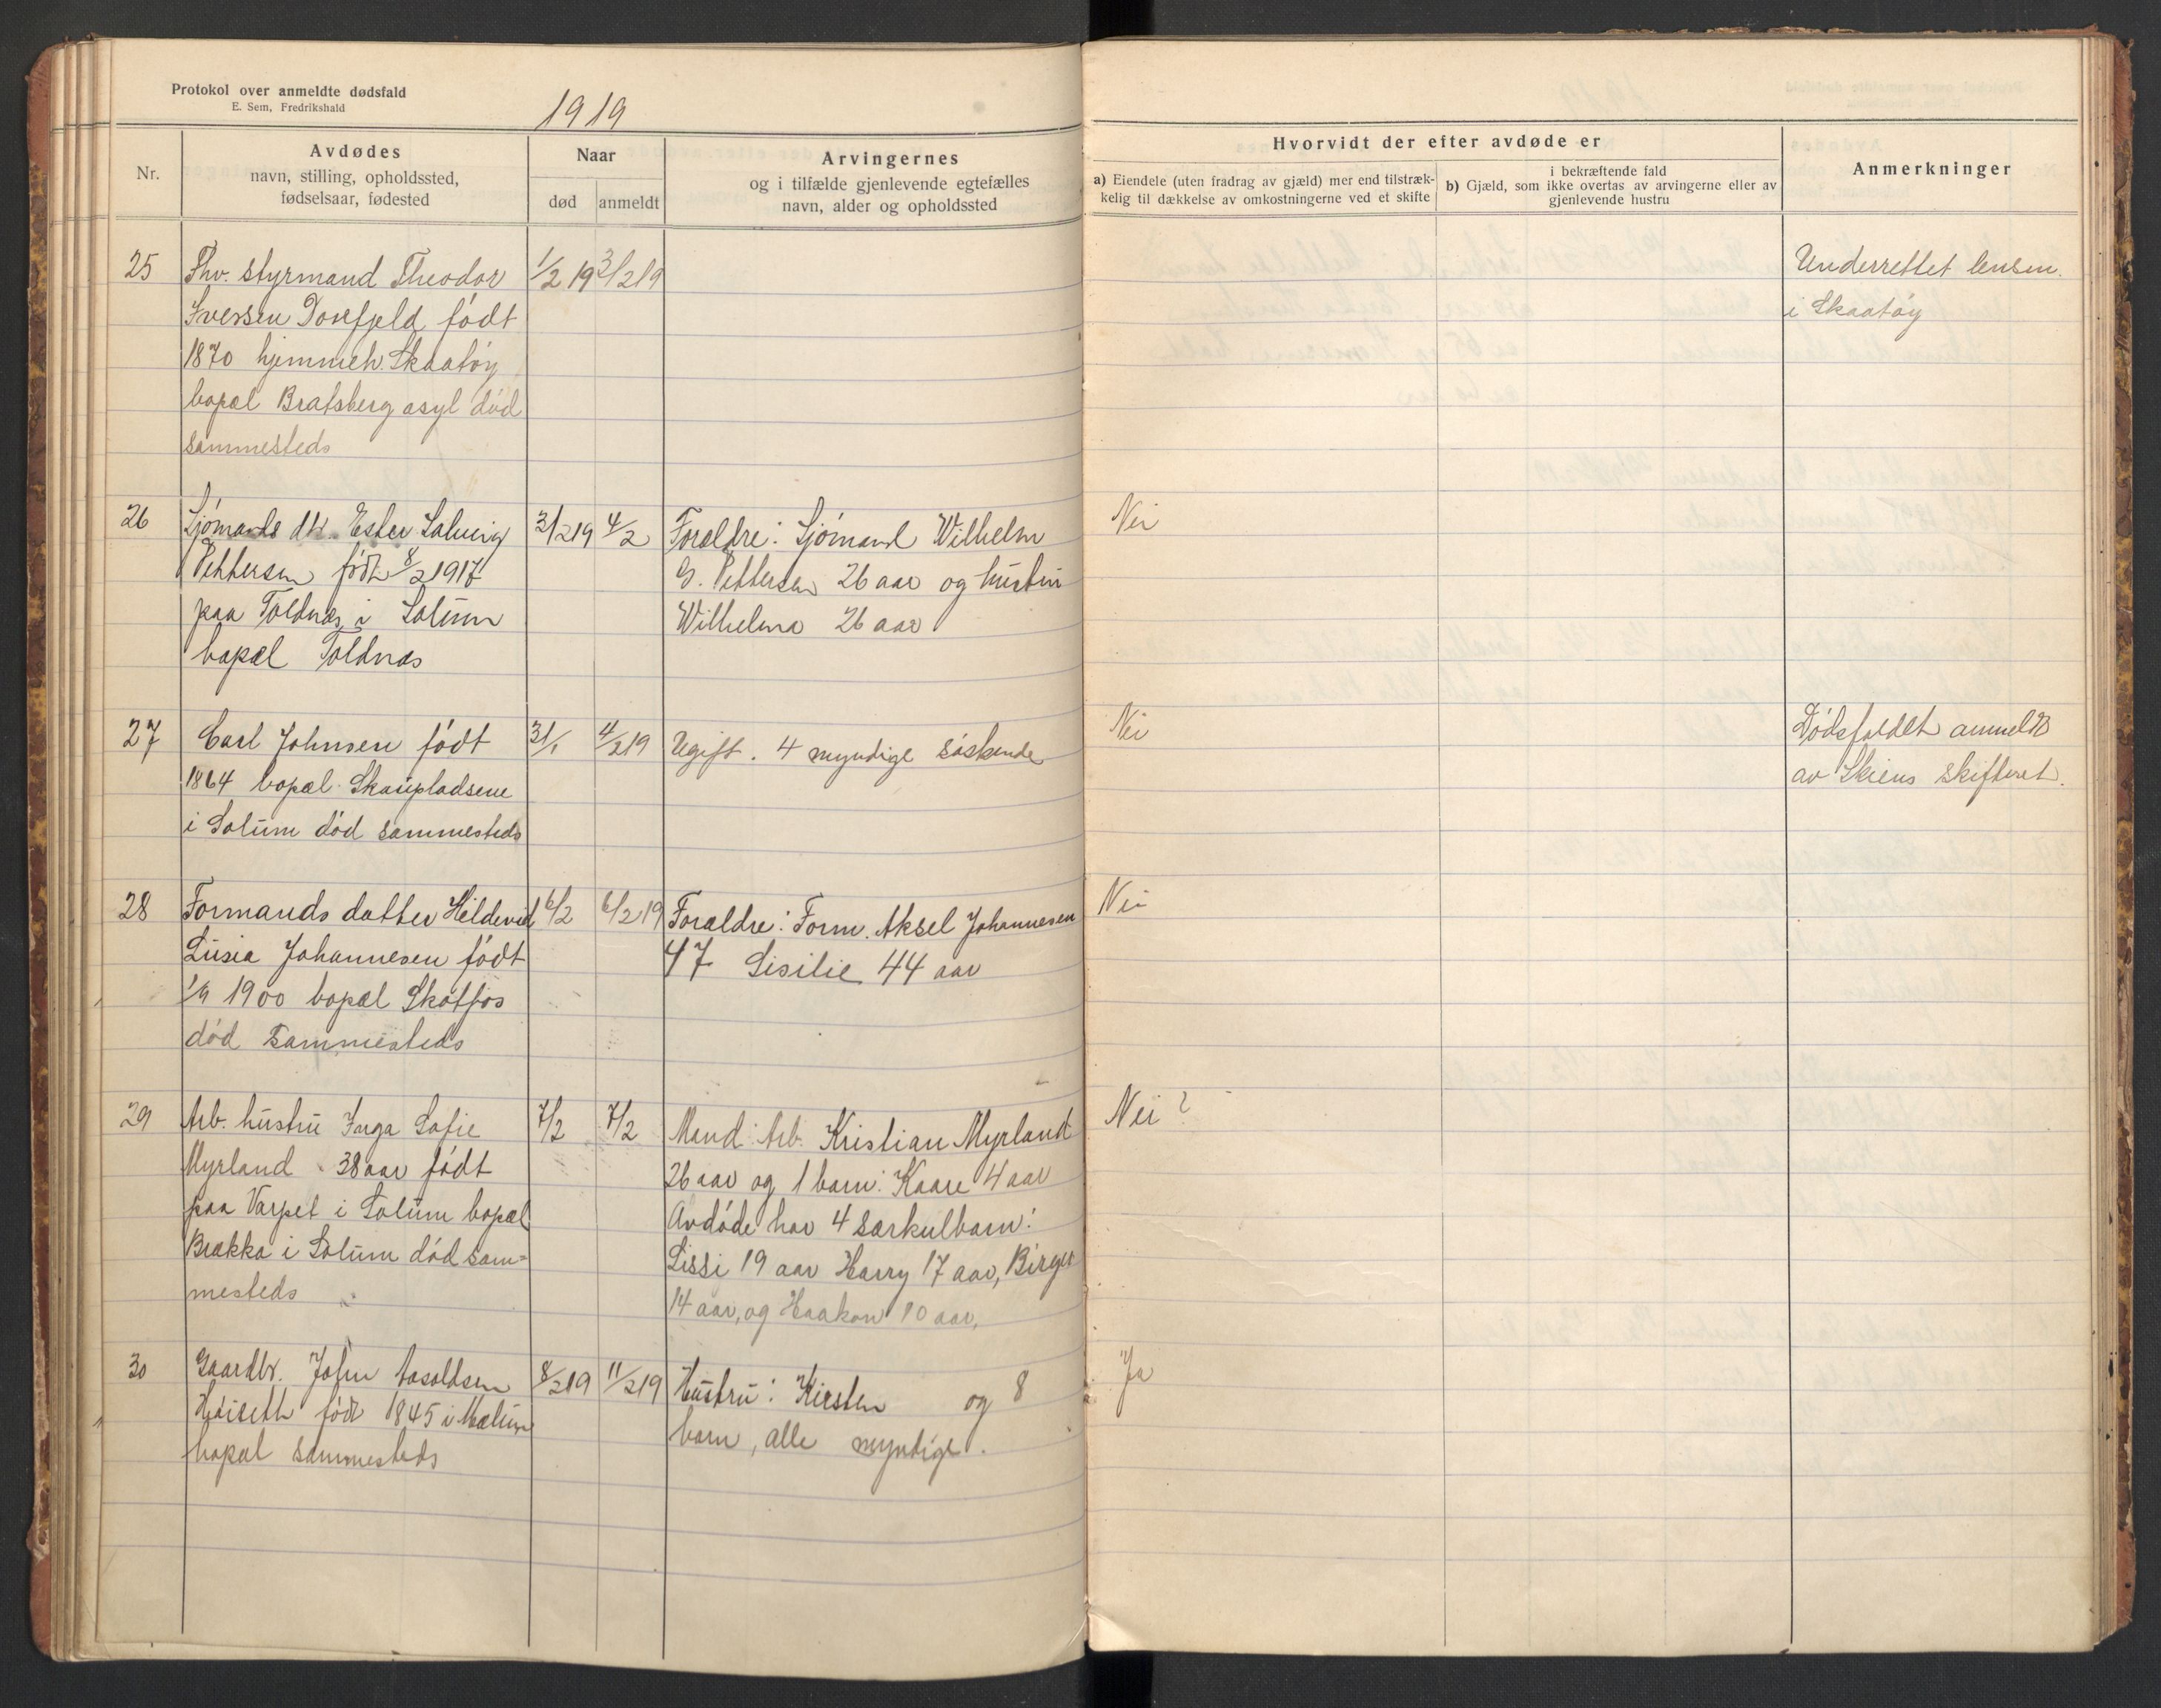 Protokol over anmeldte dødsfald
E. Sem, Fredrikshald
1919
Nr.
Avdødes
navn, stilling, opholdssted,
fødselsaar, fødested
Naar
død
anmeldt
Arvingernes
og i tilfælde gjenlevende egtefælles
navn, alder og opholdssted
Hvorvidt der efter avdøde er
a) Eiendele (uten fradrag av gjæld) mer end tilstræk-
kelig til dækkelse av omkostningerne ved et skifte
i bekræftende fald
b) Gjæld, som ikke overtas av arvingerne eller av
gjenlevende hustru
Anmerkninger
25
Fhv. styrmand Theodor
Iversen Dovefjeld født
1870 hjemmeh. Skaatøy
bopæl Bratsberg asyl død
sammesteds
1/2 19
3/2 19
Underrettet lensm.
i Skaatøy
26
Sjømands dtr. Ester Solveig
Pettersen født 8/2 1917
paa Toldnæs i Solum
bopæl Toldnæs
3/2 19
4/2
Foraldre: Sjømand Wilhelm
G. Pettersen 26 aar og hustru
Wilhelma 26 aar
Nei
27
Carl Johnsen født
1864 bopæl Skaupladsene
i Solum død sammesteds
31/1
4/2 19
Ugift. 4 myndige søskende
Nei
Dødsfaldet anmeldt
av Skiens skifteret.
28
Formands datter Hildevid
Lusia Johannesen født
1/9 1900 bopæl Skotfos
død sammesteds
6/2
6/2 19
Foraldre: Form. Aksel Johannesen
47 Sisilie 44 aar
Nei
29
Arb. hustru Inga Sofie
Myrland 38 aar født
paa Varpet i Solum bopæl
Brækka i Solum død sam=
mesteds
7/2
7/2
Mand: Arb. Kristian Myrland
26 aar og 1 barn: Kaare 4 aar
Avdøde har 4 særkulbarn:
Lissi 19 aar Harry 17 aar, Birger
14 aar, og Haakon 10 aar,
Nei ?
30
Gaardbr. John Aasoldsen
Høiseth født 1845 i Mælum
bopæl sammesteds
8/2 19
11/2 19
Hustru: Kirsten og 8
barn, alle myndige.
Ja